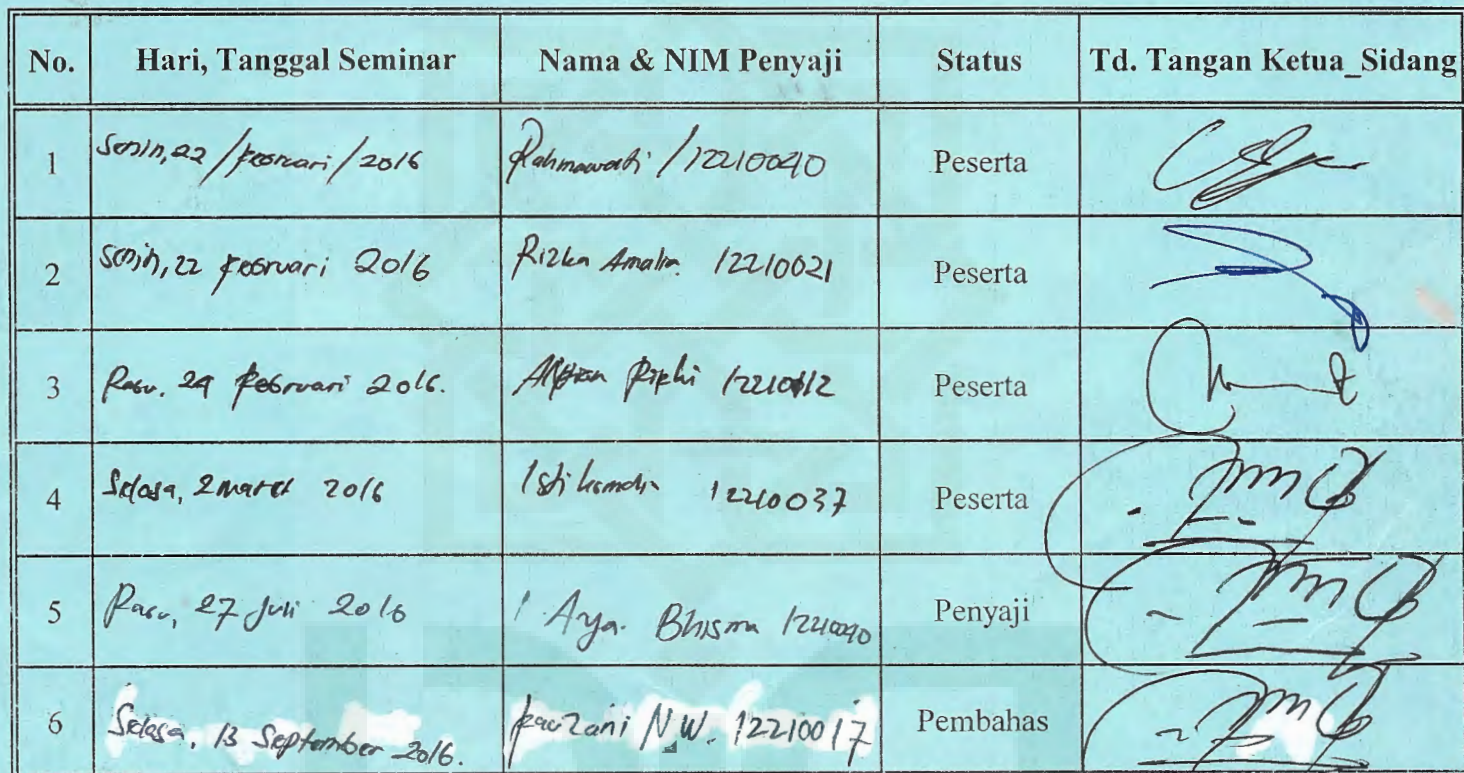 No. Hari, Tanggal Seminar Nama & NIM Penyaji Status Td. Tangan Ketua_Sidang
1 Senin, 22 / Februari / 2016 Rahmawati / 12210040 Peserta
2 Senin, 22 Februari 2016 Rizka Amalia. 12210021 Peserta
3 Rabu. 24 Februari 2016. Alfian Rizki Peserta
4 Selasa, 2 Maret 2016 12210037 Peserta
5 Rabu, 27 Juli 2016 Arya. Bhisma Penyaji
6 Selasa, 13 September 2016. Fauzani N.W. 12210017 Pembahas